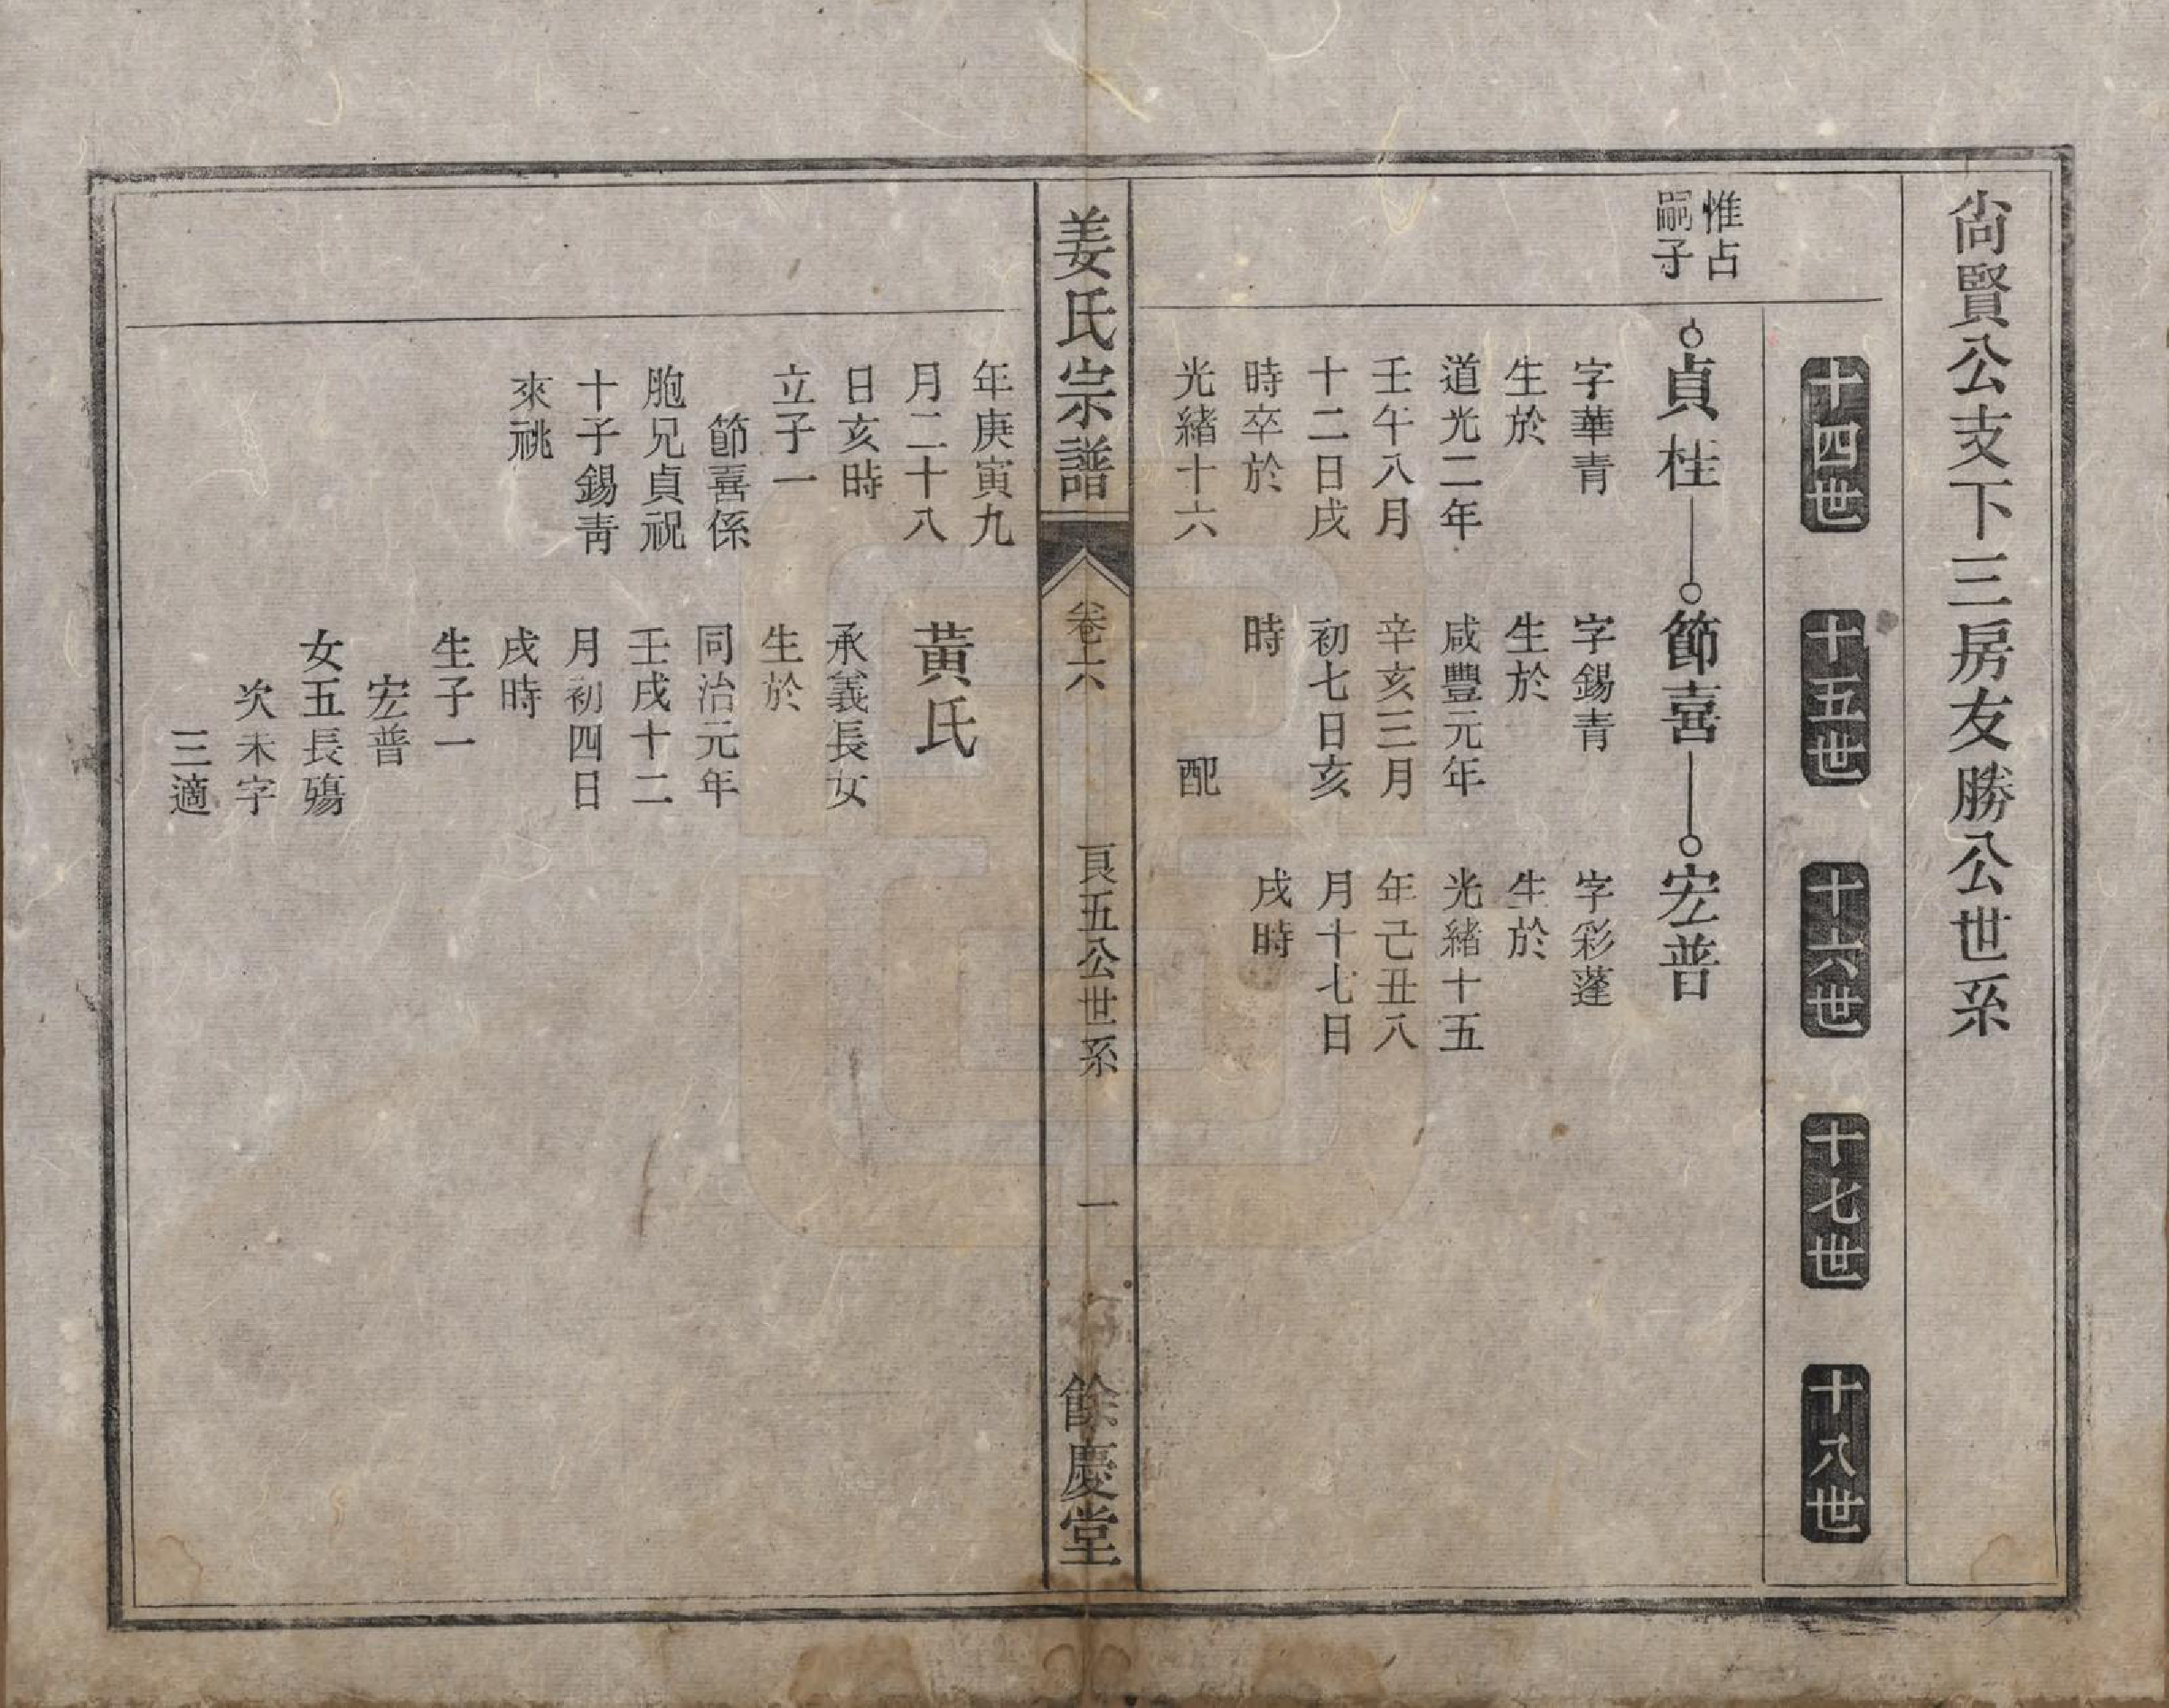 尙賢公支下三房友勝公世系
十四世
十五世
十六世
十七世
十八世
惟占
嗣子
貞桂
節喜
宏普
字華青
生於
道光二年
壬午八月
十二日戌
時卒於
光緒十六
字錫青
生於
咸豐元年
辛亥三月
初七日亥
時
配
字彩蓬
生於
光緒十五
年己丑八
月十七日
戌時
姜氏宗譜
卷六
貢五公世系
一
餘慶堂
年庚寅九
月二十八
日亥時
立子一
節喜係
胞兄貞祝
十子錫靑
來祧
黃氏
承義長女
生於
同治元年
壬戌十二
月初四日
戌時
生子一
宏普
女五長殤
次未字
三適